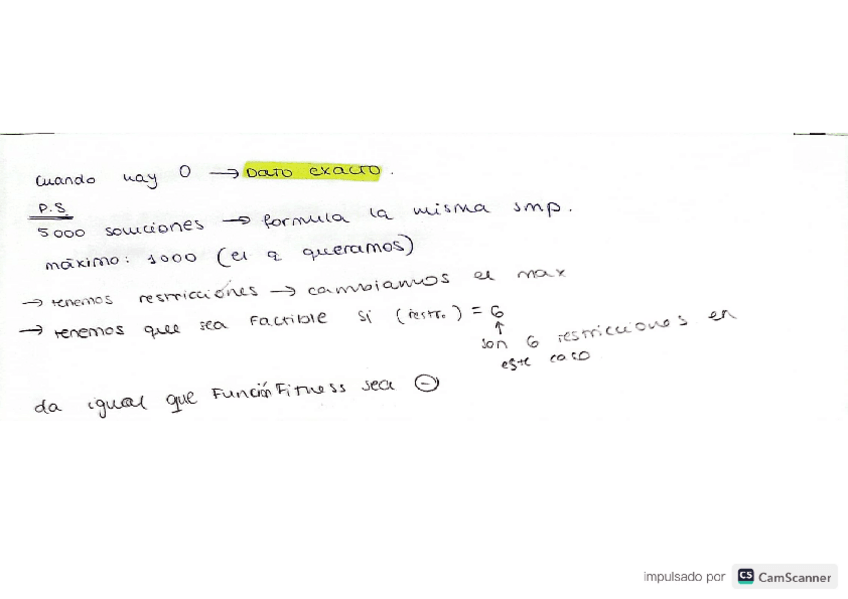 cuando hay 0 → Dato exacto.
P.S.
5000 soluciones → formula la misma smp.
máximo: 1000 (el q queramos)
→ tenemos restricciones → cambiamos el max
→ tenemos que sea Factible si (restr.) = 6
↑
son 6 restricciones en
este caso
da igual que Función Fitness sea ⊖
impulsado por CS CamScanner